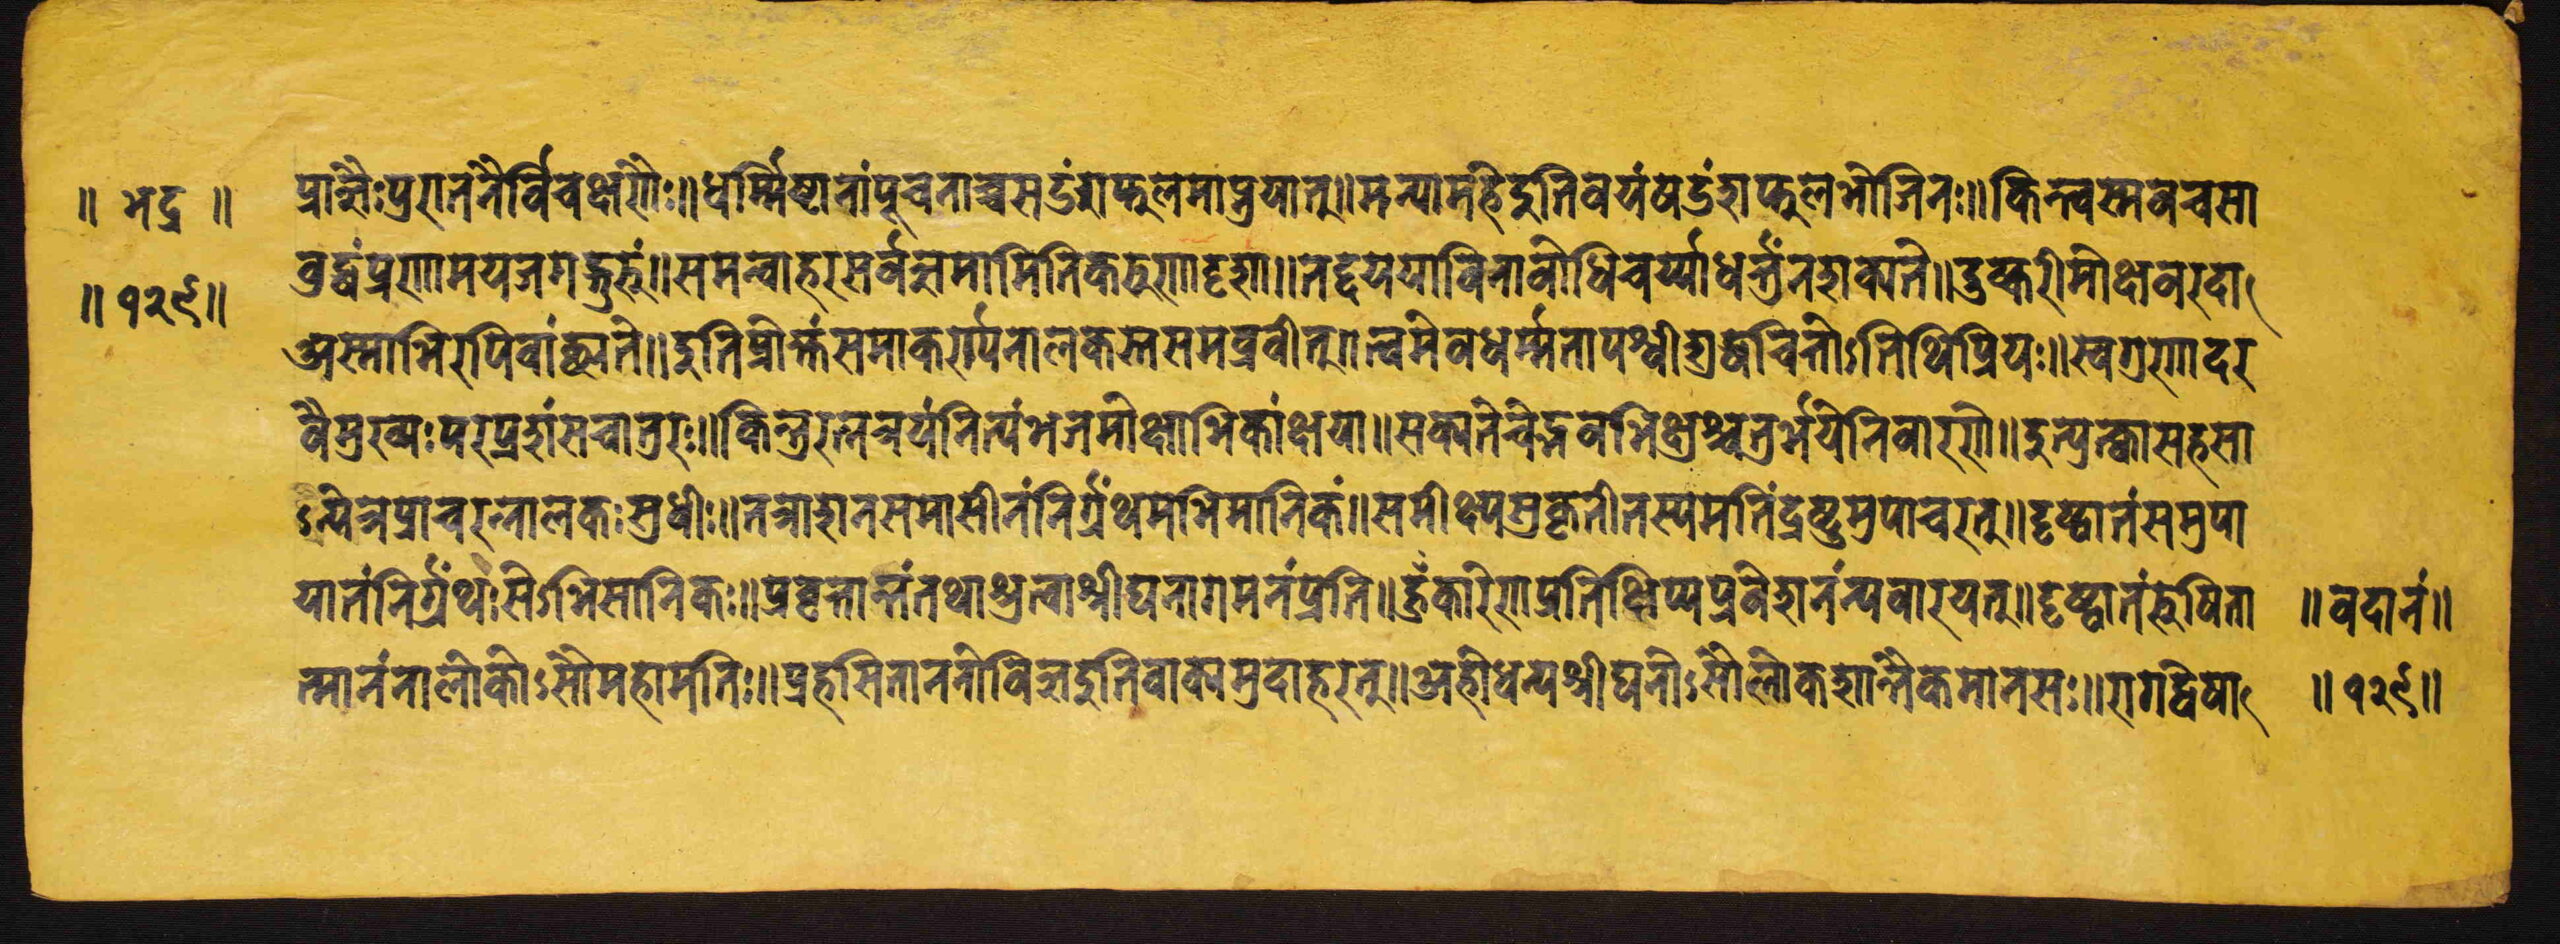 ॥ भद्र ॥
॥ १२९ ॥
प्राज्ञैःपुरातनैर्विचक्षणैः॥धर्म्मिष्ठानांपूजनाच्चसडंशफलमाप्नुयात्॥मन्यामहेइतिवयंषडंशफलभोजिनः॥किन्त्वस्तवचसा
वुद्धंप्रणमयजगद्गुरुं॥समन्वाहरसर्वज्ञमामितिकरुणादृशा॥तद्दययाविनावोधिचर्य्याधर्त्तुंनशक्यते॥दुष्करीमोक्षवरदा
अस्माभिरपिवांछ्यते॥इतिप्रोक्तंसमाकर्ण्यनालकस्तसमव्रवीत्॥त्वमेवधर्म्मतापश्वीशुद्धचित्तोऽतिथिप्रियः॥स्वगुणादर
वैमुख्यःपरप्रशंसचातुरः॥किन्तुरत्नत्रयंनित्यंभजमोक्षाभिकांक्षया॥सक्यतेचेद्भवभिक्षुश्चतुर्भयेनिवारणे॥इत्युत्क्वासहसा
ऽन्येत्रप्राचरन्नालकःसुधीः॥तत्राशनसमासीनंनिर्ग्रंथमभिमानिकं॥समीक्ष्यसुकृतीतस्यमतिंद्रष्टुमुपाचरत्॥दृष्ट्वातंसमुपा
यातंनिर्ग्रंथःसोऽभिमानिकः॥प्रवृत्तान्तंतथाश्रुत्वाश्रीघनागमनंप्रति॥हुँकारेणप्रतिक्षिप्यप्रवेशनंन्यवारयत्॥दृष्ट्वातंरुषिता
त्मानंनालोकोऽसौमहामतिः॥प्रहसिताननोविज्ञइतिवाक्यमुदाहरत्॥अहोधन्यश्रीघनोऽसौलोकशान्तैकमानसः॥रागद्वेषा
॥ वदानं॥
॥ १२९॥